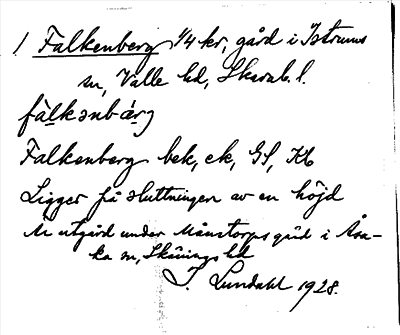 1 Falkenberg 1/4 kr, gård i Istrums
sn, Valle hd, Skarab. l.
fàlkɘnbǽrj
Falkenberg bek, ek, GS, Kb
Ligger på sluttningen av en höjd
Är utgård under Månstorps gård i Åsa-
ka sn, Skånings hd
J. Lundahl 1928.